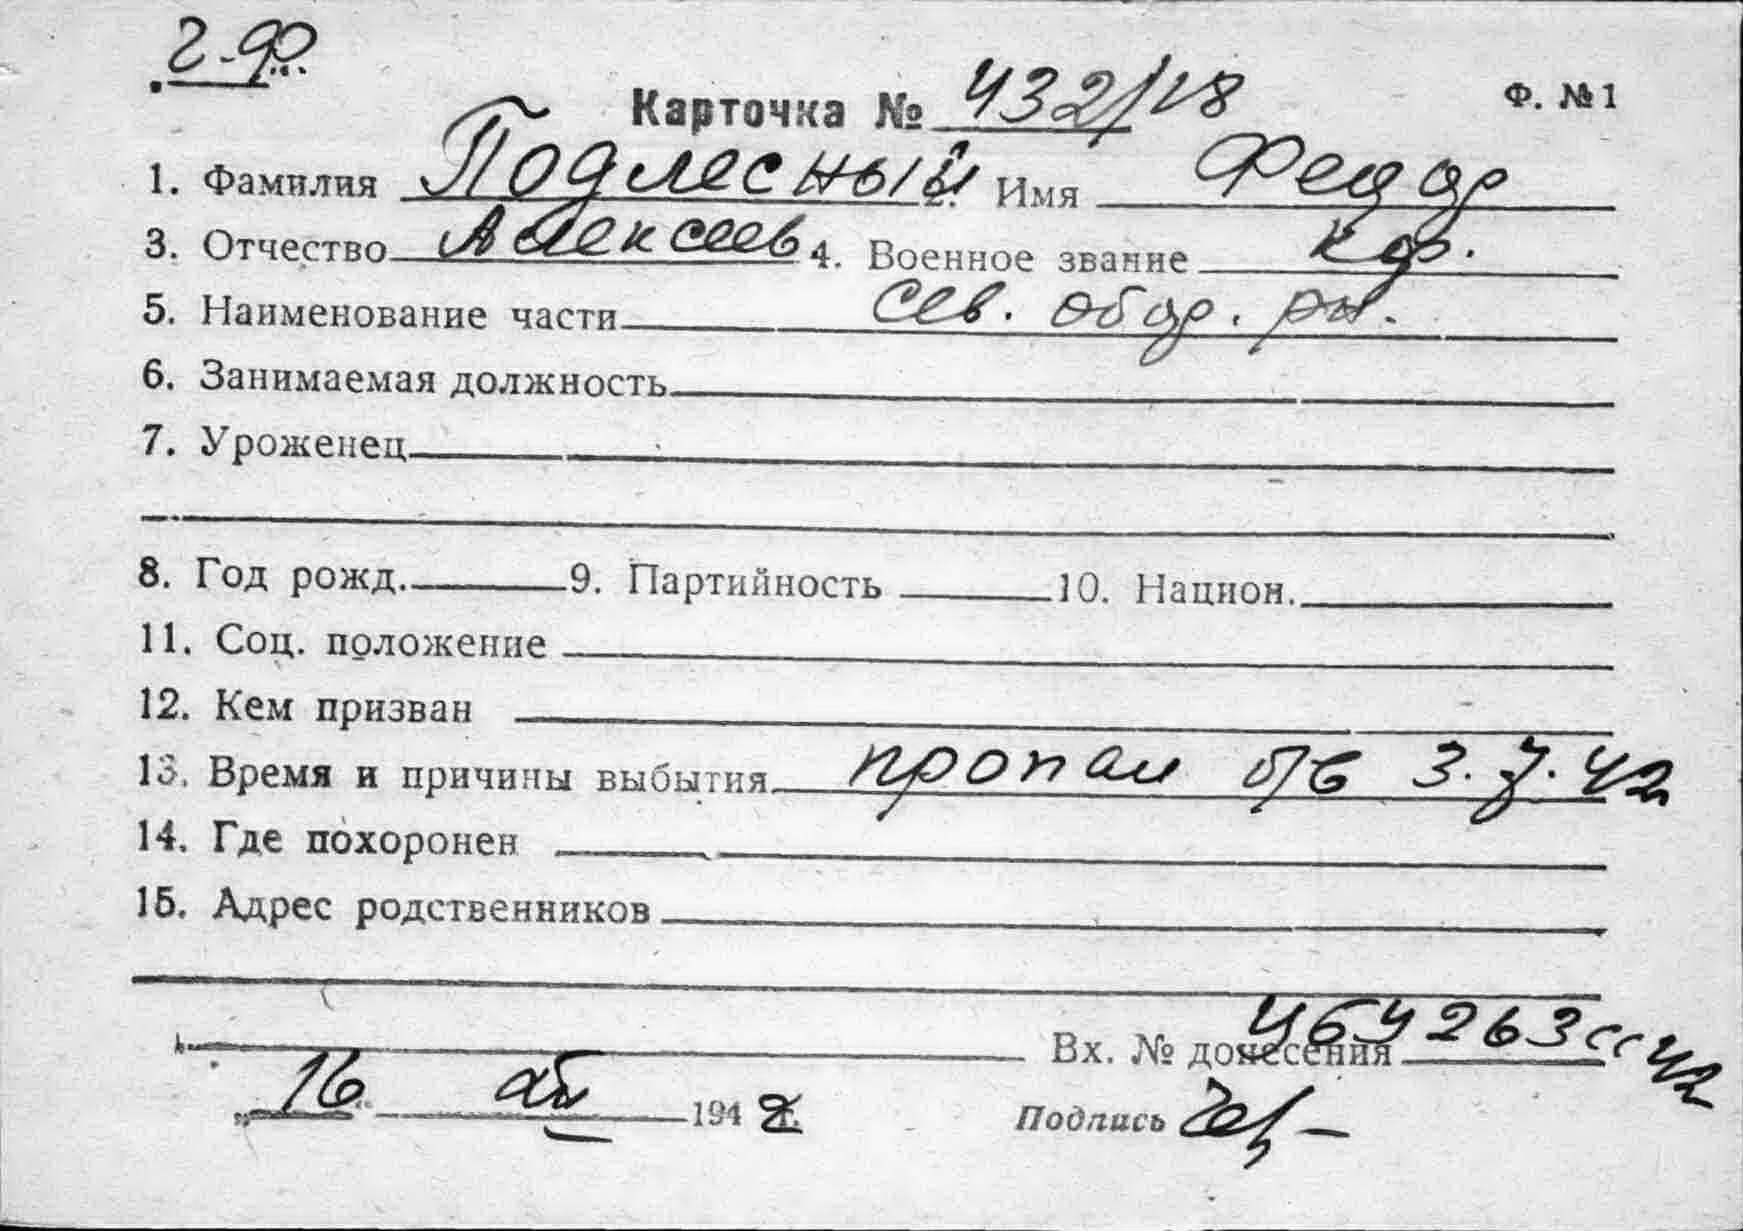 2-90
Карточка № 432/128 Ф. №1
1. Фамилия Подлесный 2. Имя Федор
3. Отчество Алексеев 4. Военное звание кф.
5. Наименование части Сев. обор. рн.
6. Занимаемая должность
7. Уроженец
8. Год рожд. 9. Партийность 10. Национ.
11. Соц. положение
12. Кем призван
13. Время и причины выбытия пропал б/в 3.7.42
14. Где похоронен
15. Адрес родственников
Вх. № донесения 464263сс 42
„16“ 194 г. Подпись